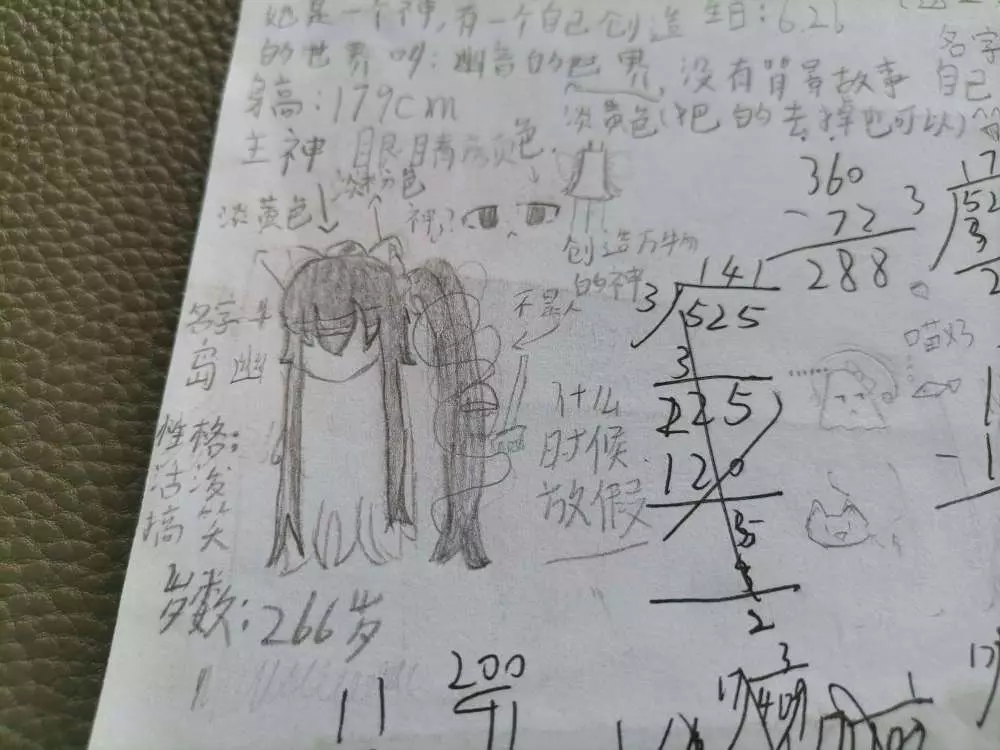 她是一个神,有一个自己创造 生日:6.26
的世界叫:幽音的世界,没有背景故事
名字
自己
身高:179cm
淡黄色(把的去掉也可以)
主神 眼睛
色.
淡粉色
淡黄色
神?
创造万物
的神
名字
岛幽
不是人
性格:
活泼
搞笑
什么
时候
放假
岁数:266岁
喵好
360
-72
288
3
17
52
3
2
141
3 525
3
225
120
35
2
200
11
3
17
17